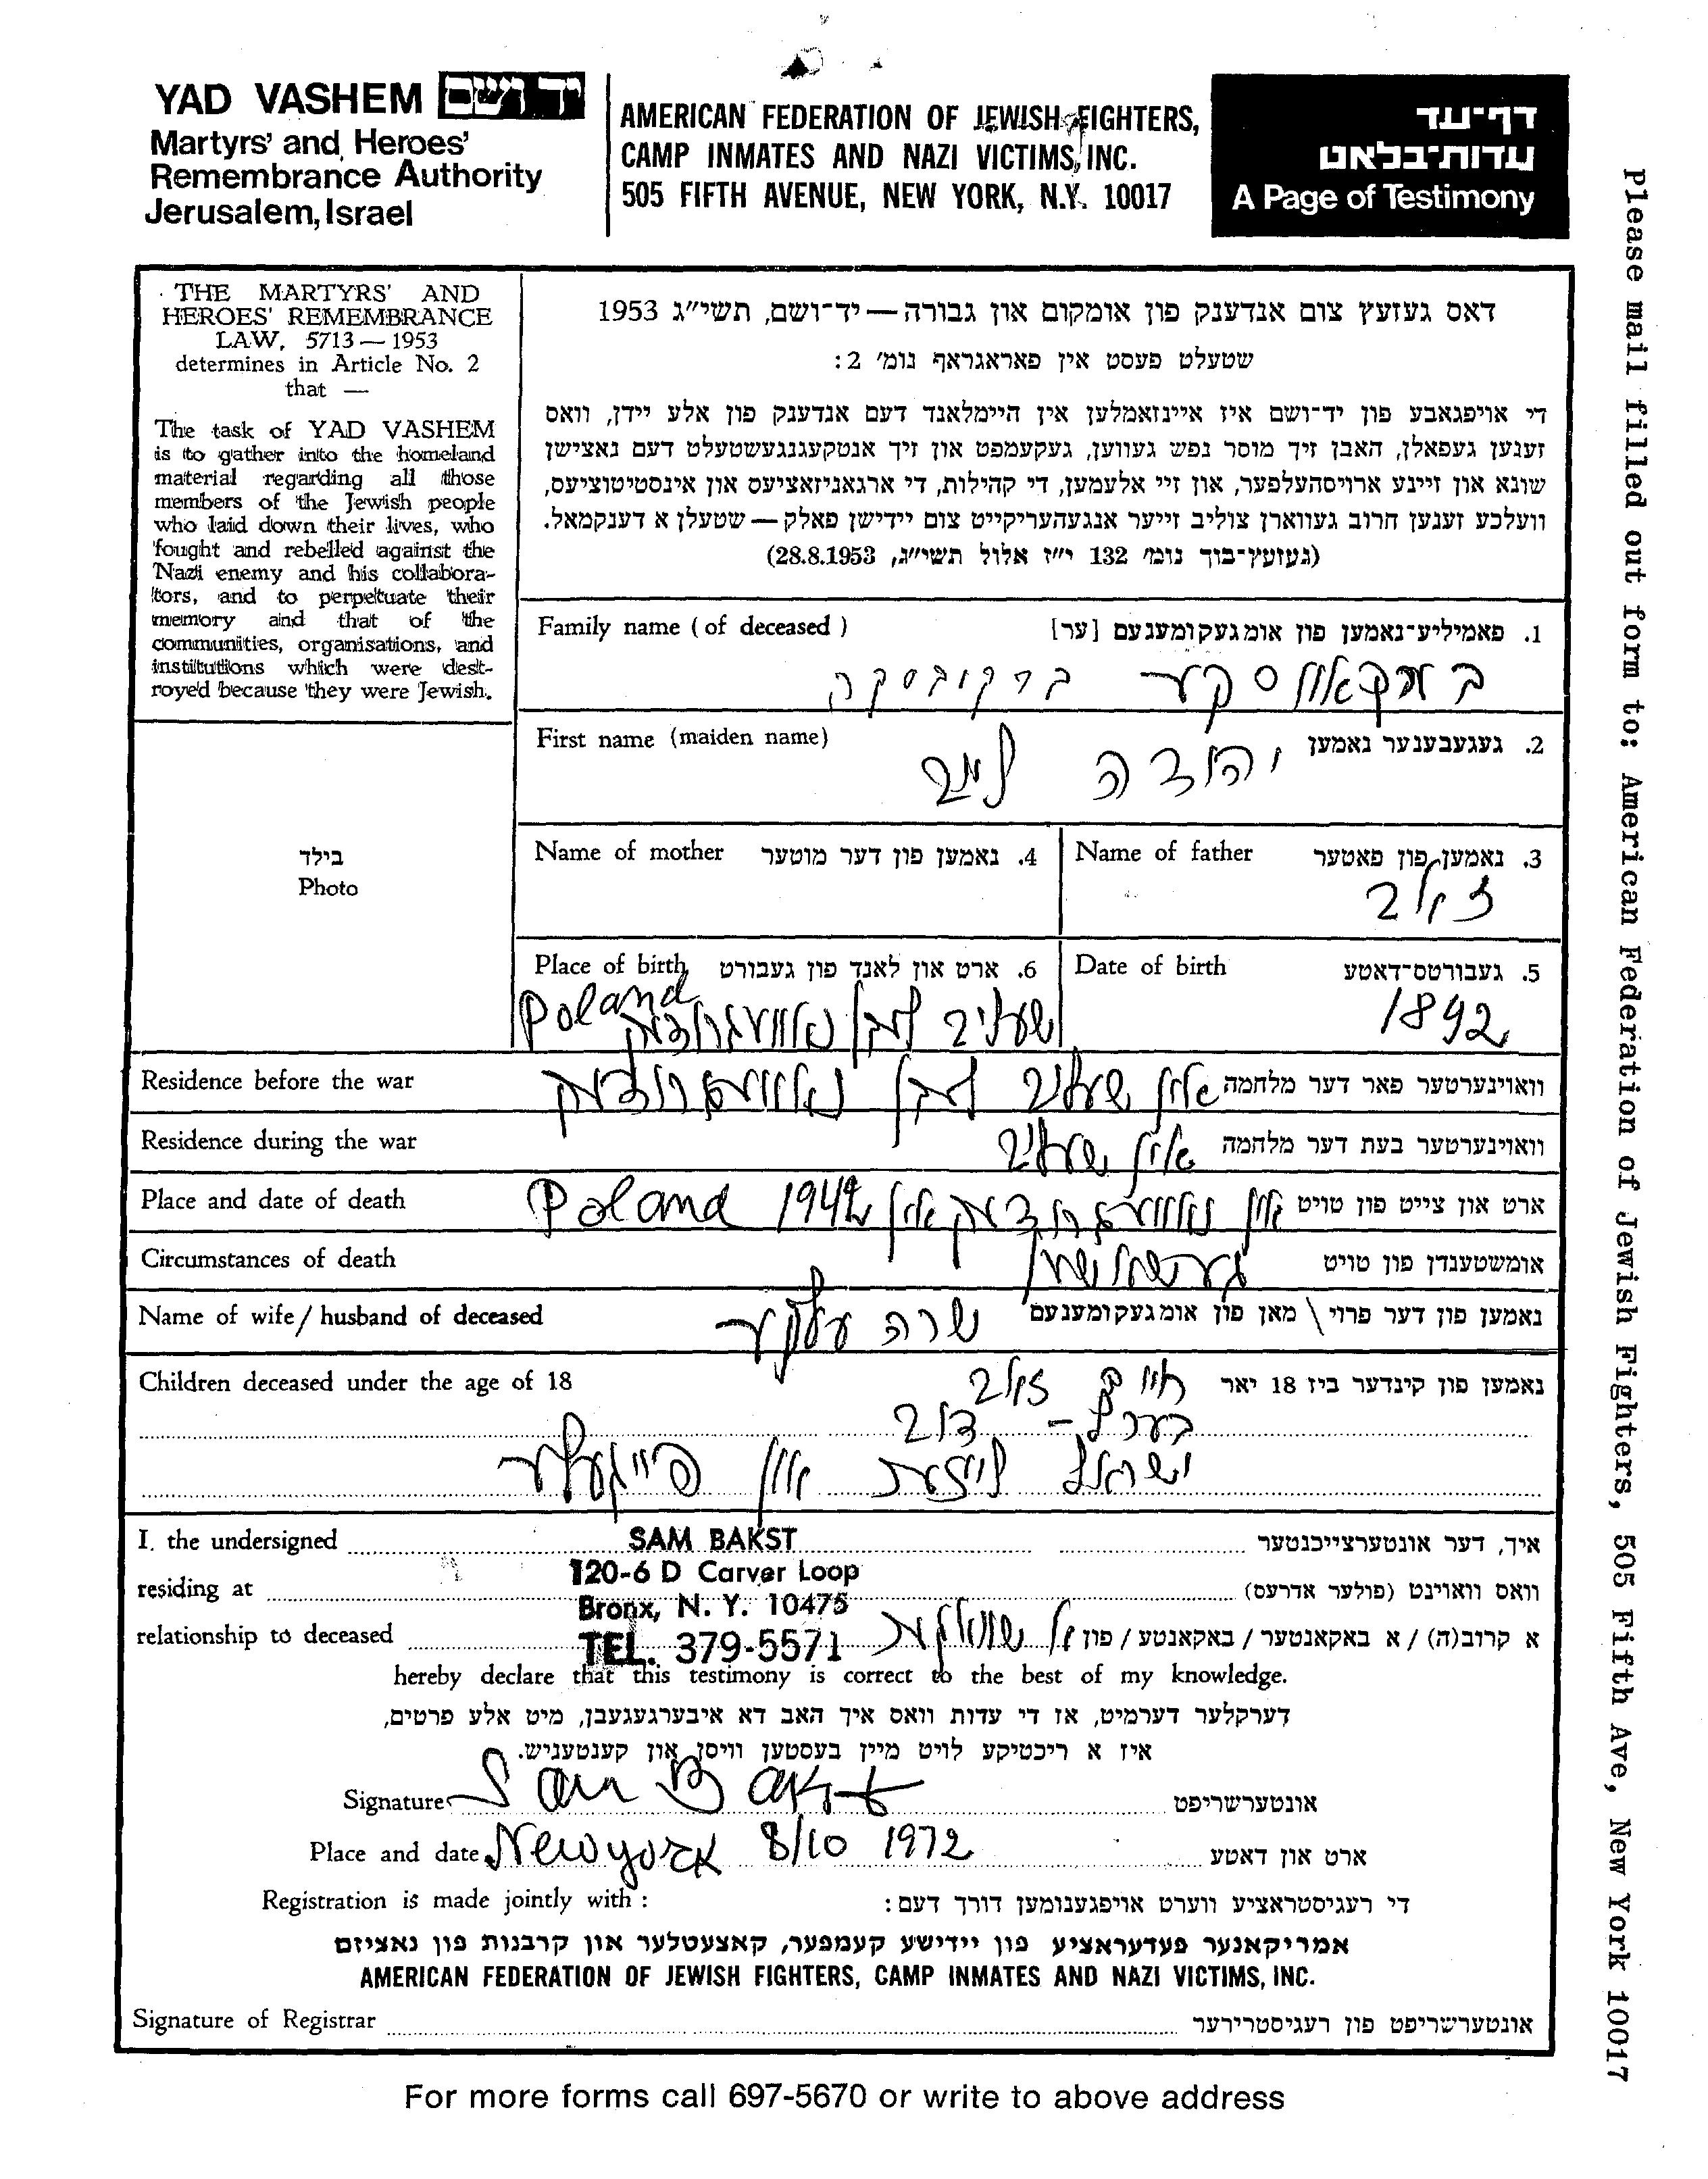 YAD VASHEM יד ושם
Martyrs' and Heroes'
Remembrance Authority
Jerusalem, Israel
AMERICAN FEDERATION OF JEWISH FIGHTERS,
CAMP INMATES AND NAZI VICTIMS, INC.
505 FIFTH AVENUE, NEW YORK, N.Y. 10017
דף-עד
עדות-בלאט
A Page of Testimony
THE MARTYRS' AND
HEROES' REMEMBRANCE
LAW, 5713 — 1953
determines in Article No. 2
that —
The task of YAD VASHEM
is to gather into the homeland
material regarding all those
members of the Jewish people
who laid down their lives, who
fought and rebelled against the
Nazi enemy and his collabora-
tors, and to perpetuate their
memory and that of the
communities, organisations, and
institutions which were dest-
royed because they were Jewish.
דאס געזעץ צום אנדענק פון אומקום און גבורה — יד-ושם, תשי"ג 1953
שטעלט פעסט אין פאראגראף נומ' 2:
די אויפגאבע פון יד-ושם איז איינזאמלען אין היימלאנד דעם אנדענק פון אלע יידן, וואס
זענען געפאלן, האבן זיך מוסר נפש געווען, געקעמפט און זיך אנטקעגנגעשטעלט דעם נאצישן
שונא און זיינע ארויסהעלפער, און זיי אלעמען, די קהילות, די ארגאניזאציעס און אינסטיטוציעס,
וועלכע זענען חרוב געווארן צוליב זייער אנגעהעריקייט צום יידישן פאלק — שטעלן א דענקמאל.
(געזעץ-בוך נומ' 132 י"ז אלול תשי"ג, 28.8.1953)
Family name (of deceased) 1. פאמיליע-נאמען פון אומגעקומענעם [ער]
בערקאווסקע ברקובסקה
First name (maiden name) 2. געגעבענער נאמען
יהודה לייב
בילד
Photo
Name of father 3. נאמען פון פאטער
זילב
Name of mother 4. נאמען פון דער מוטער
Date of birth 5. געבורטס-דאטע
1892
Place of birth 6. ארט און לאנד פון געבורט
Poland
Residence before the war וואוינערטער פאר דער מלחמה
Residence during the war וואוינערטער בעת דער מלחמה
Place and date of death ארט און צייט פון טויט
Poland 1942
Circumstances of death אומשטענדן פון טויט
Name of wife / husband of deceased נאמען פון דער פרוי \ מאן פון אומגעקומענעם
שרה
Children deceased under the age of 18 נאמען פון קינדער ביז 18 יאר
חיים זילב
בערל - דוב
ישראל און פייגעלע
I, the undersigned SAM BAKST איך, דער אונטערצייכנטער
120-6 D Carver Loop
residing at Bronx, N. Y. 10475 וואס וואוינט (פולער אדרעס)
relationship to deceased TEL. 379-5571 א קרוב(ה) / א באקאנטער / באקאנטע / פון
hereby declare that this testimony is correct to the best of my knowledge.
דערקלער דערמיט, אז די עדות וואס איך האב דא איבערגעגעבן, מיט אלע פרטים,
איז א ריכטיקע לויט מיין בעסטען וויסן און קענטעניש.
Signature Sam Bakst אונטערשריפט
Place and date New york 8/10 1972 ארט און דאטע
Registration is made jointly with: די רעגיסטראציע ווערט אויפגענומען דורך דעם:
אמריקאנער פעדעראציע פון יידישע קעמפער, קאצעטלער און קרבנות פון נאציזם
AMERICAN FEDERATION OF JEWISH FIGHTERS, CAMP INMATES AND NAZI VICTIMS, INC.
Signature of Registrar אונטערשריפט פון רעגיסטרירער
For more forms call 697-5670 or write to above address
Please mail filled out form to: American Federation of Jewish Fighters, 505 Fifth Ave, New York 10017